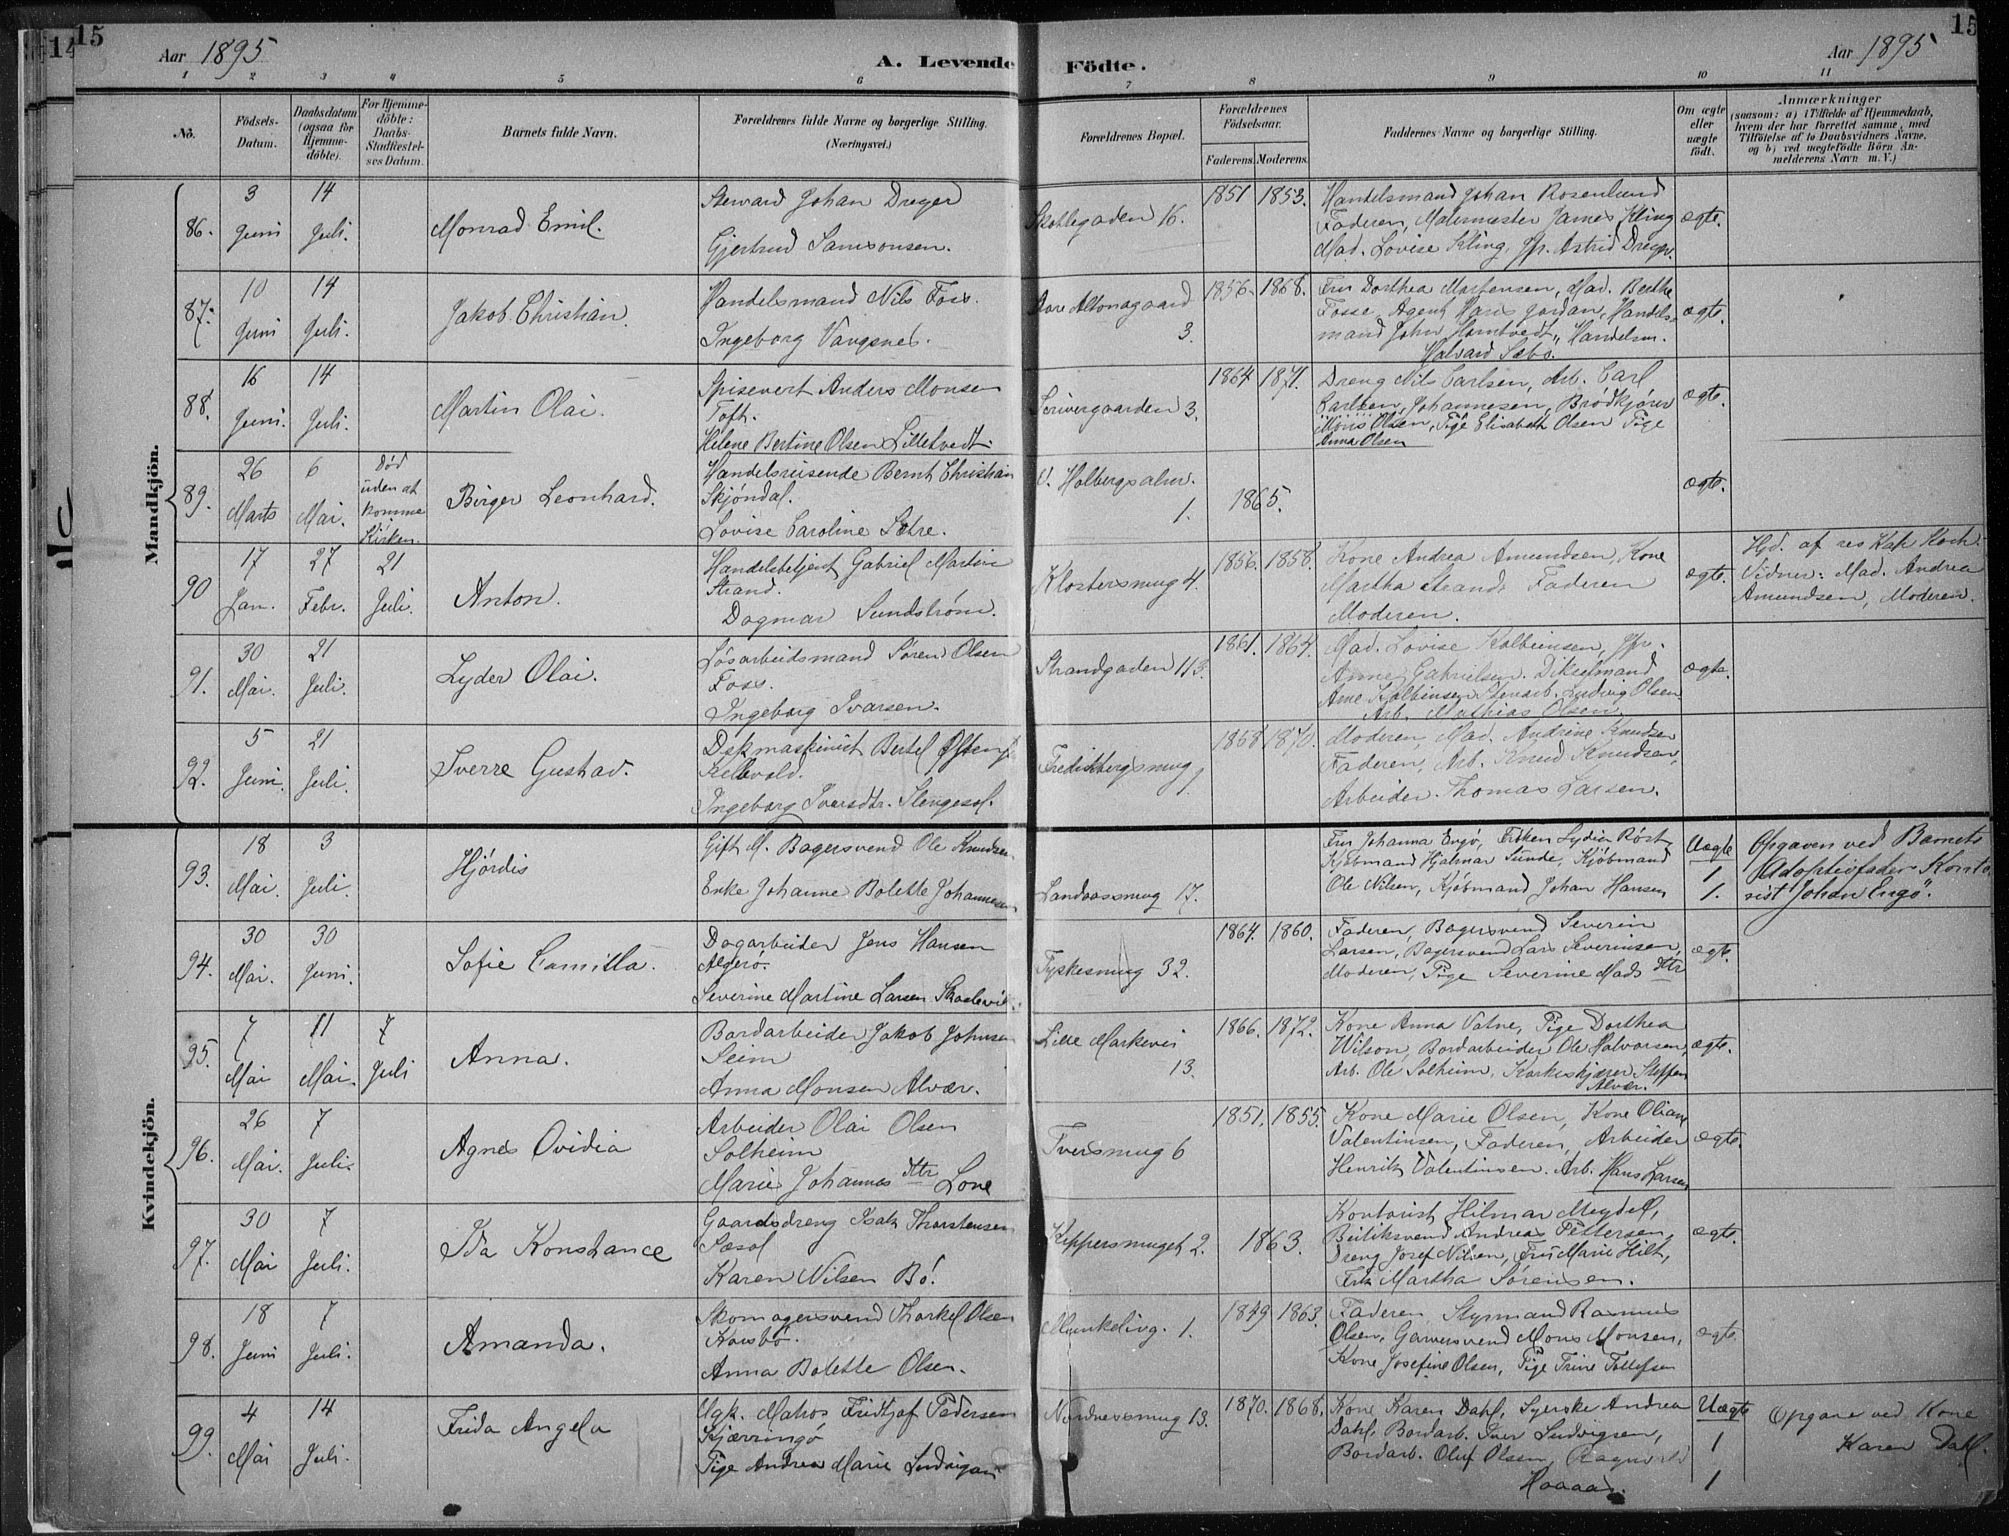 14
15
Aar 1895
A. Levende Födte.
Aar 1895
15
1 2 3 4 5 6 7 8 9 10 11
No.
Födsels-
Datum.
Daabsdatum
(ogsaa for
Hjemme-
döbte).
For Hjemme-
döbte:
Daabs-
Stadfæstel-
ses Datum.
Barnets fulde Navn.
Forældrenes fulde Navne og borgerlige Stilling.
(Næringsvei.)
Forældrenes Bopæl.
Forældrenes
Födselsaar.
Faderens. Moderens.
Faddernes Navne og borgerlige Stilling.
Om ægte
eller
uægte
født.
Anmærkninger
(saasom: a) i Tilfælde af Hjemmedaab,
hvem der har forrettet samme, med
Tilföielse af to Daabsvidners Navne,
og b) ved uegtefödte Börn An-
melderens Navn m. V.)
Mandkjön.
86.
3
Juni
14
Juli.
Monrad Emil.
Steward Johan Dreyer
Gjertrud Samsonsen.
Skottegaden 16.
1851 1853.
Handelsmand Johan Rosenlund
Faderen, Malermester James Kling
Mad. Lovise Kling, Jfr. Astrid Dreyer.
ægte.
87.
10
Juni
14
Juli.
Jakob Christian.
Handelsmand Nils Foss.
Ingeborg Vangsnes.
Altonagaard
3.
1856. 1868.
Fru Dorthea Martensen, Mad. Berthe
Fosse, Agent Hans Jordan, Handels-
mand John Homtvedt, Handelsm.
Halvard Sæbø.
ægte.
88.
16
Juni.
14
Juli.
Martin Olai.
Spisevert Anders Monsen
Toft.
Helene Bertine Olsen Lilletvedt.
Scrivergaarden 3.
1864 1871.
Dreng Nils Carlsen, Arb. Carl
Carlsen, Johannesen, Brödkjörer
Mons Olsen, Pige Elisabeth Olsen Pige
Anna Olsen
ægte.
89.
26
Marts
6
Mai.
Död
uden at
komme
Kirken.
Birger Leonhard.
Handelsreisende Bernt Christian
Skjöndal.
Lovise Caroline Sætre.
V. Holbergsalm.
1.
1865.
ægte.
90
17
Jan.
27
Febr.
21
Juli.
Anton.
Handelsbetjent Gabriel Martin
Strand.
Dagmar Sundström.
Klostersmug 4.
1856. 1858.
Kone Andrea Amundsen, Kone
Martha Strand, Faderen
Moderen.
ægte.
Hjd. af res Kap Koch.
Vidner: Mad. Andrea
Amundsen, Moderen.
91.
30
Mai.
21
Juli.
Lyder Olai.
Løsarbeidsmand Søren Olsen
Foss.
Ingeborg Ivarsen.
Strandgaden 113.
1861. 1864.
Mad. Lovise Kolbeinsen, Jfr.
Anne Gabrielsen. Dikselmand
Arne Kolbeinsen Stenarb. Ludvig Olsen
Arb. Mathias Olsen
ægte.
92.
5
Juni.
21
Juli.
Sverre Gustav.
Dskmaskinist Bertel
Ingeborg Ivarsdtr.
Fredriksbergsmug
1.
1868 1870.
Moderen, Mad. Andrine Knudsen
Faderen, Arb. Knud Knudsen,
Arbeider Thomas Larsen.
Kvindekjön.
93.
18
Mai.
3
Juli.
Hjördis
Gift M. Bagersvend Ole Knudsen
Enke Johanne Bolette Johannesen
Landaassmug 17.
Fru Johanna Engö, Frøken Lydia Røst
Kjøbmand Hjalmar Sunde, Kjöbmand
Ole Nilsen, Kjöbmand Johan Hansen
Uægte
1
1.
Opgaven ved Barnets
Adoptivfader Konto-
rist Johan Engö.
94.
30
Mai.
30
Juni.
Sofie Camilla.
Dagarbeider Jens Hansen
Algerö.
Severine Martine Larsen Skaalevik.
Tyskesmug 32.
1864. 1860.
Faderen, Bagersvend Severin
Larsen, Bagersvend Lars Severinsen,
Moderen, Pige Severine Mads dtr
ægte.
95.
7
Mai
11
Mai.
7
Juli
Anna.
Bordarbeider Jakob Johnsen
Seim
Anna Monsen Alvær.
Lille Markevei
13.
1866. 1872.
Kone Anna Vatne, Pige Dorthea
Wilson, Bordarbeider Ole Halvorsen,
Arb. Ole Solheim, Korkeskjærer Steffen
Alvær.
ægte.
96.
26
Mai.
7
Juli.
Agnes Ovidia
Arbeider Olai Olsen
Solheim
Marie Johannes dtr Lone
Tversmug 6
1851. 1855.
Kone Marie Olsen, Kone Oliane
Valentinsen, Faderen, Arbeider
Henrik Valentinsen. Arb. Hans Larsen
ægte.
97.
30
Mai
7
Juli.
Ida Konstance
Gaardsdreng Isak Thorstensen
Sæsol
Karen Nilsen Bö.
Kippersmuget 2.
1863.
Kontorist Hilmar Meydel,
Beitiksvend Andreas Pettersen,
Dreng Josef Nilsen, Fru Marie Hilt,
Frk Martha Sörensen.
ægte.
98.
18
Juni
7
Juli.
Amanda.
Skomagersvend Thorkel Olsen
Korsbö.
Anna Bolette Olsen.
Munkelivg. 1.
1849 1863.
Faderen, Styrmand Rasmus
Olsen, Garversvend Mons Monsen,
Kone Josefine Olsen, Pige Trine Tollefsen
ægte.
99.
4
Mai
14
Juli.
Frida Angela
Ugk. Matros Fridtjof Pedersen
Kjærringö
Pige Andrea Marie Ludvigsen
Nordnessmug 13.
1870. 1868.
Kone Karen Dahl, Syerske Andrea
Dahl, Bordarb. Iver Ludvigsen,
Bordarb. Oluf Olsen, Ragnvald
Haaaas.
Uægte
1
1
Opgave ved Kone
Karen Dahl.